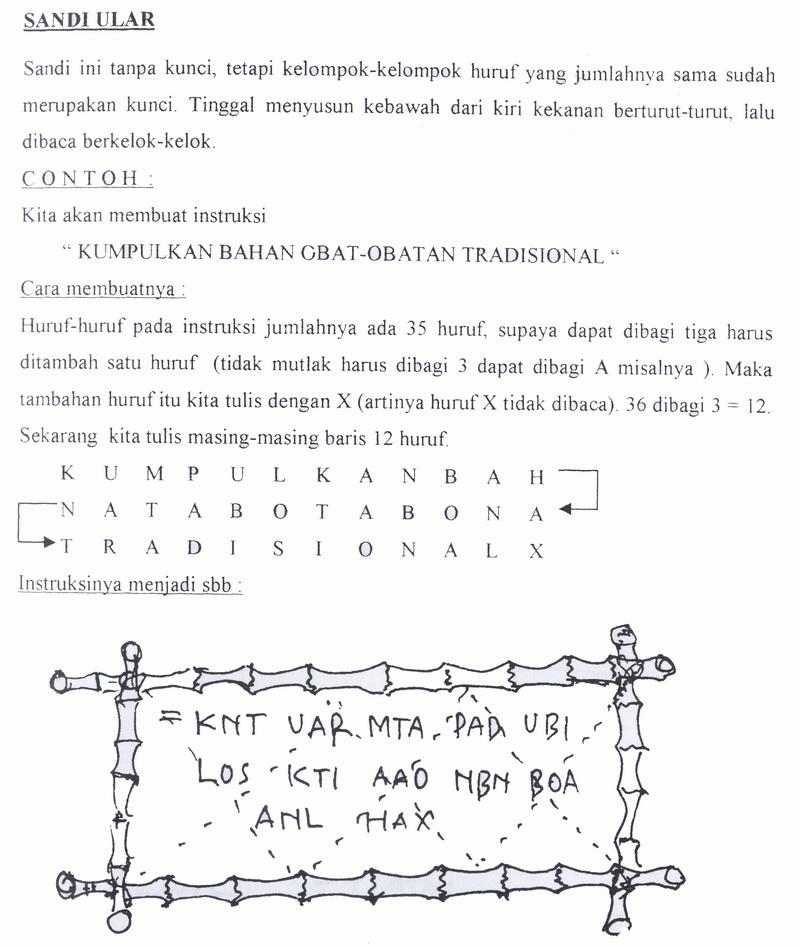 SANDI ULAR
Sandi ini tanpa kunci, tetapi kelompok-kelompok huruf yang jumlahnya sama sudah
merupakan kunci. Tinggal menyusun kebawah dari kiri kekanan berturut-turut, lalu
dibaca berkelok-kelok.
CONTOH :
Kita akan membuat instruksi
“ KUMPULKAN BAHAN OBAT-OBATAN TRADISIONAL “
Cara membuatnya :
Huruf-huruf pada instruksi jumlahnya ada 35 huruf, supaya dapat dibagi tiga harus
ditambah satu huruf (tidak mutlak harus dibagi 3 dapat dibagi A misalnya ). Maka
tambahan huruf itu kita tulis dengan X (artinya huruf X tidak dibaca). 36 dibagi 3 = 12.
Sekarang kita tulis masing-masing baris 12 huruf.
K U M P U L K A N B A H
N A T A B O T A B O N A
T R A D I S I O N A L X
Instruksinya menjadi sbb :
= KNT UAR MTA PAD UBI
LOS KTI AAO NBN BOA
ANL HAX